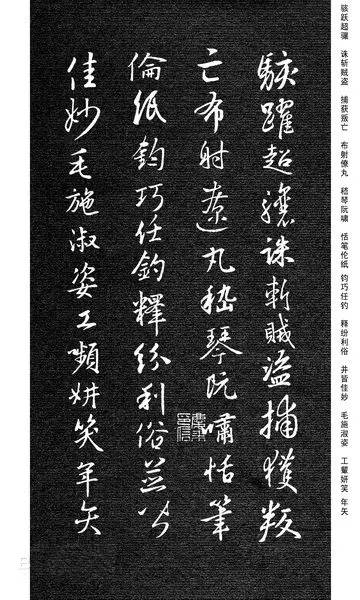 骇跃超骧 诛斩贼盗 捕获叛亡 布射僚丸 嵇琴阮啸 恬笔伦纸 钧巧任钓 释纷利俗 并皆佳妙 毛施淑姿 工颦妍笑 年矢
駭躍超驤誅斬賊盗捕獲叛
亡布射遼丸嵇琴阮嘯恬筆
倫紙鈞巧任釣釋紛利俗並皆
佳妙毛施淑姿工嚬妍笑年矢